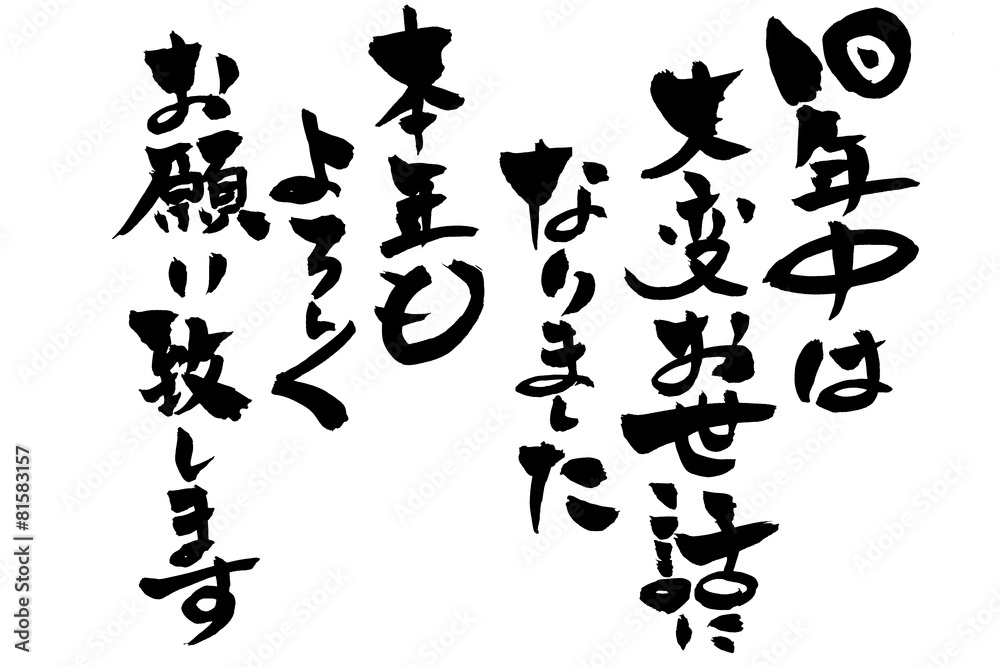 旧年中は
大変お世話に
なりました
本年も
よろしく
お願い致します
Adobe Stock | #81583157